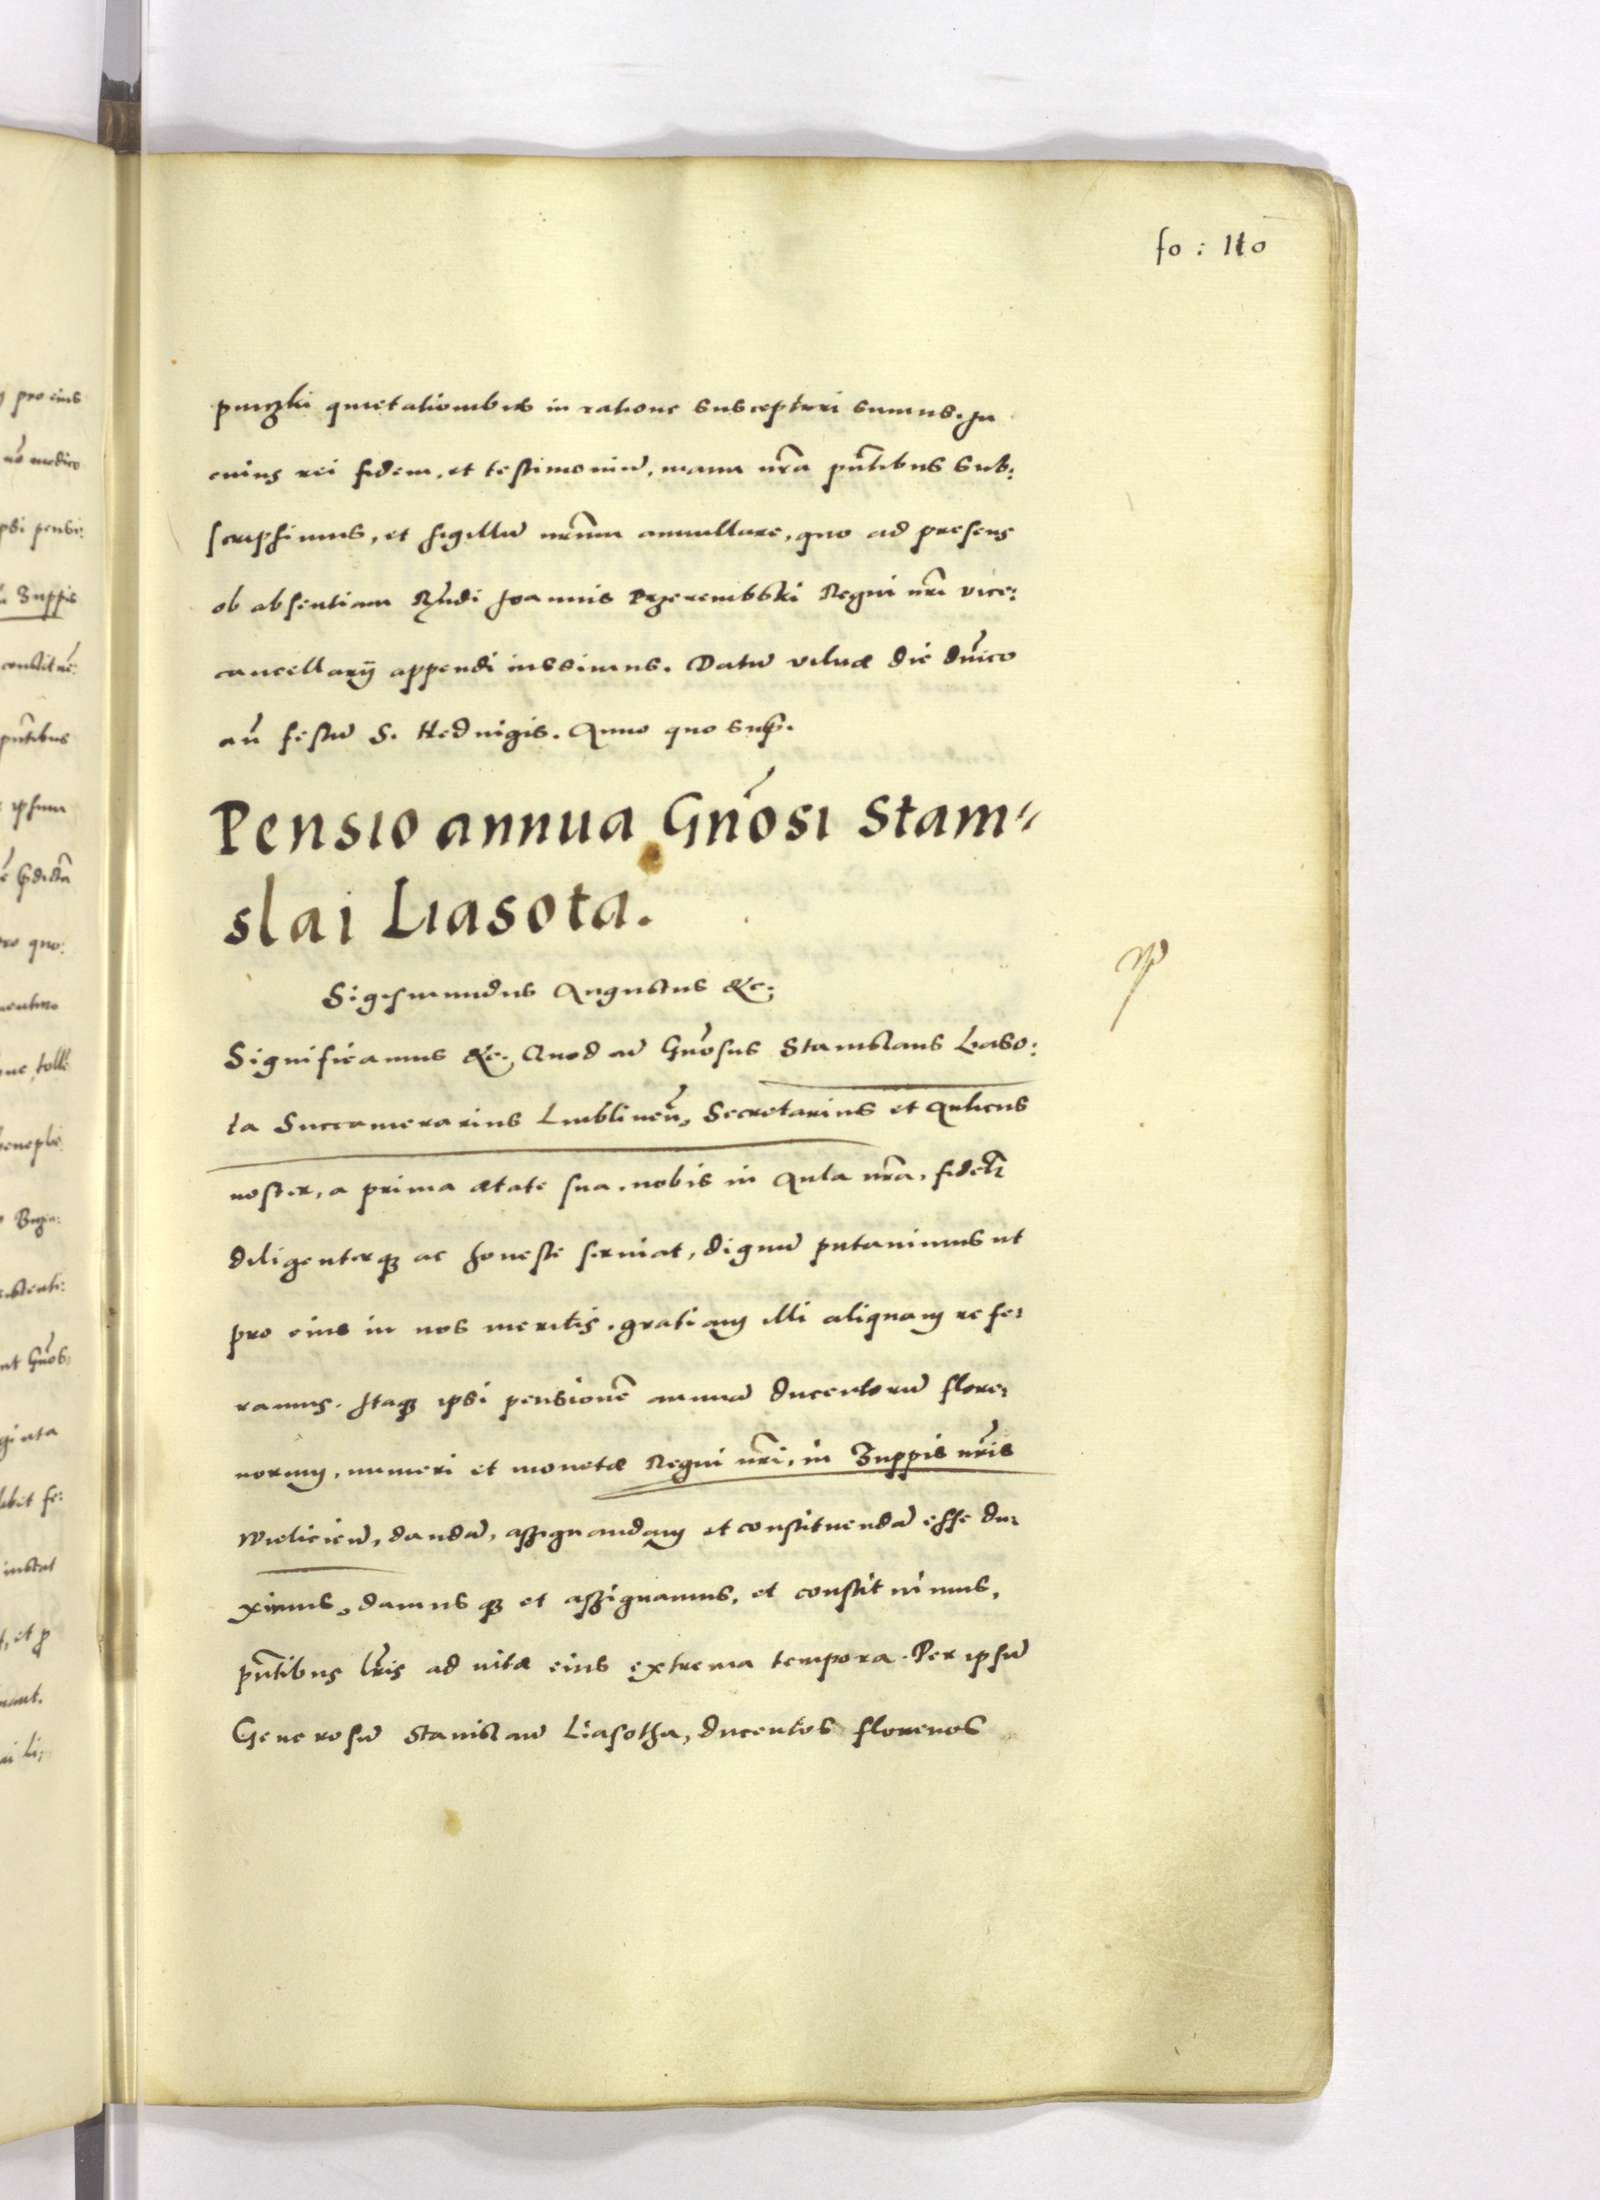 fo : 110
quietationibus in ratione suscepturi sumus. In
cuius rei fidem, et testimoniū, manu nr̃a pñtibus sub:
scripsimus, et sigillū nr̃um annullare, quo ad presens
ob absentiam Rñdi Joannis Przerembski Regni nr̃i vice:
cancellarij appendi iussimus. Datū vilnæ die dñico
añ festū S. Hedvigis. Anno quo supˢ.
Pensio annua Gñosi Stani=
slai Liasota.
Sigismundus Augustus &c:
Significamus &c. Quod cū Gñosus Stanislaus Laso:
ta Succamerarius Lublineñ, Secretarius et Aulicus
noster, a prima ætate sua, nobis in Aula nr̃a, fidelr̃
diligenterq₃ ac honeste serviat, dignū putavimus ut
pro eius in nos meritis, gratiam illi aliquam refe:
ramus. Itaq₃ ipsi pensionē annuā ducentorū flore:
norum, numeri et monetæ Regni nr̃i, in Zuppis nr̃is
Wieliciēn, dandā, assignandam et constituendā esse du:
ximus, damusq₃ et assignamus, et constituimus,
pñtibus lr̃is ad vitæ eius extrema tempora. Per ipsū
Generosū Stanislaū Liasotha, ducentos florenos